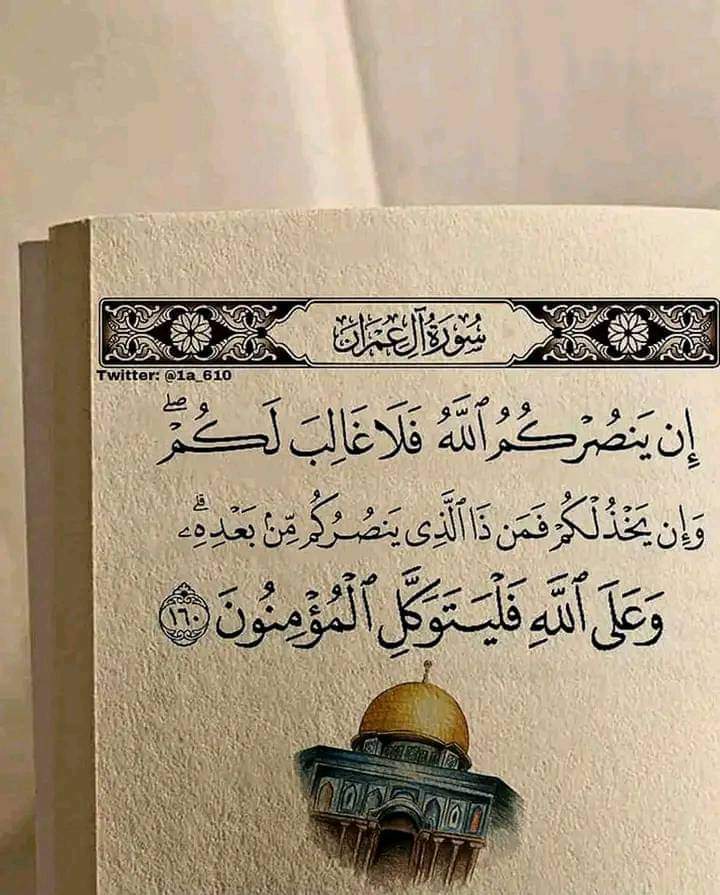 سُورَةُ آلِ عِمْرَانَ
Twitter: @1a_610
إِن يَنصُرْكُمُ ٱللَّهُ فَلَا غَالِبَ لَكُمْ ۖ
وَإِن يَخْذُلْكُمْ فَمَن ذَا ٱلَّذِى يَنصُرُكُم مِّنۢ بَعْدِهِۦ ۗ
وَعَلَى ٱللَّهِ فَلْيَتَوَكَّلِ ٱلْمُؤْمِنُونَ ١٦٠